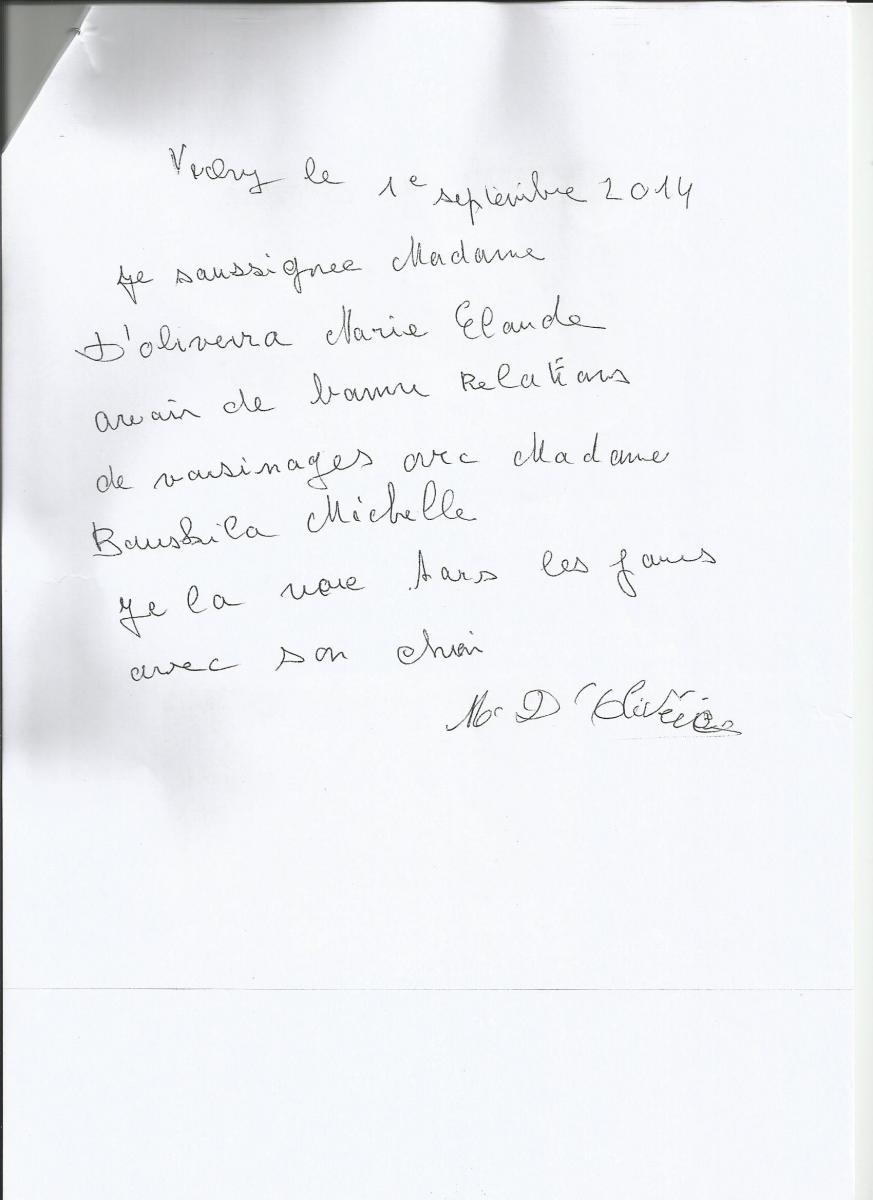 le 1e septembre 2014
Je soussignée Madame
D'oliveira Marie Claude
avoir de bonne Relations
de voisinages avec Madame
Michelle
Je la voie tors les jours
avec son chien
D'Oliveira